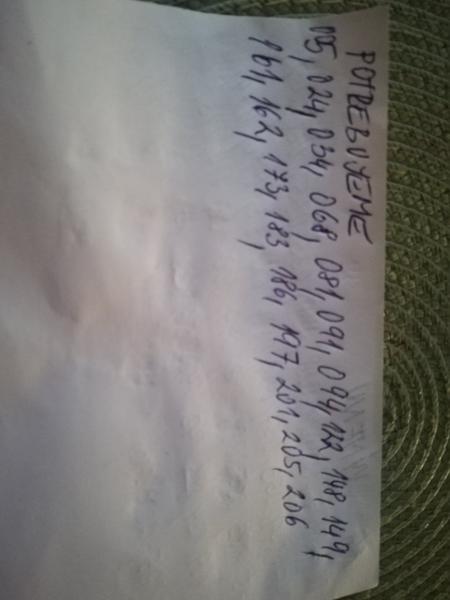 POTREBUJEME
005, 024, 034, 068, 081, 091, 094, 122, 148, 149,
161, 162, 173, 183, 186, 197, 201, 205, 206